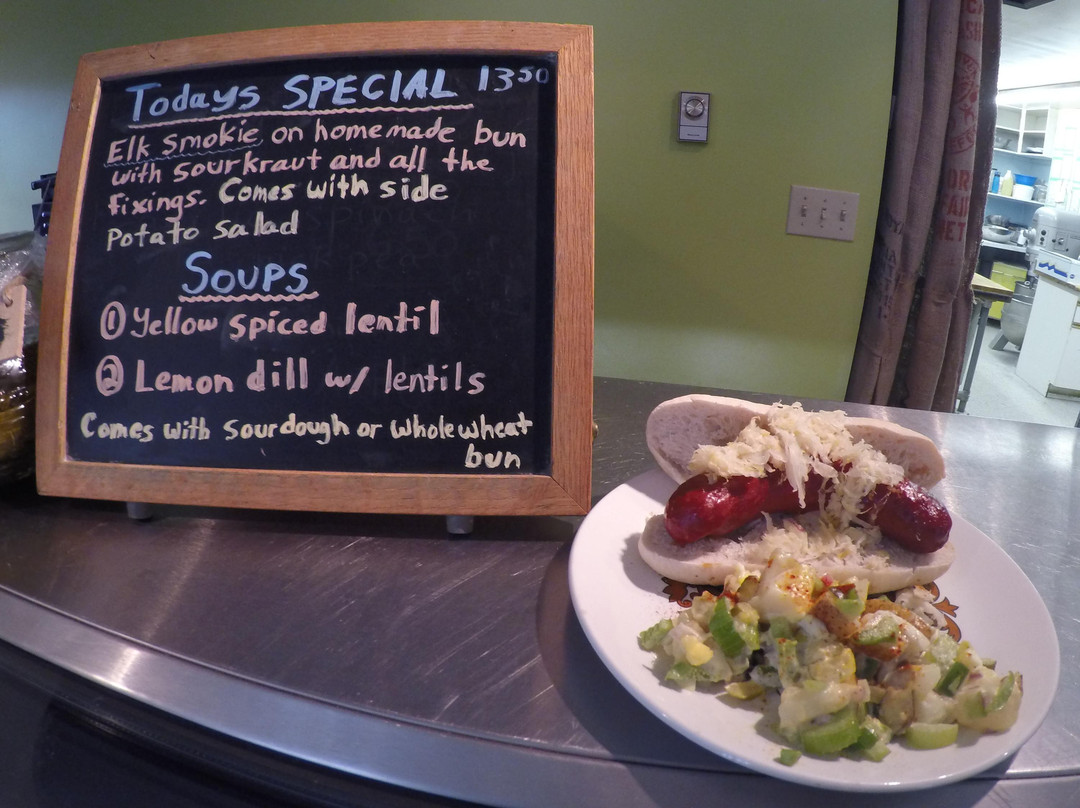 Todays SPECIAL 13⁵⁰
Elk Smokie on homemade bun
with sourkraut and all the
fixings. Comes with side
Potato salad
SOUPS
① Yellow spiced lentil
② Lemon dill w/ lentils
Comes with sourdough or whole wheat
bun